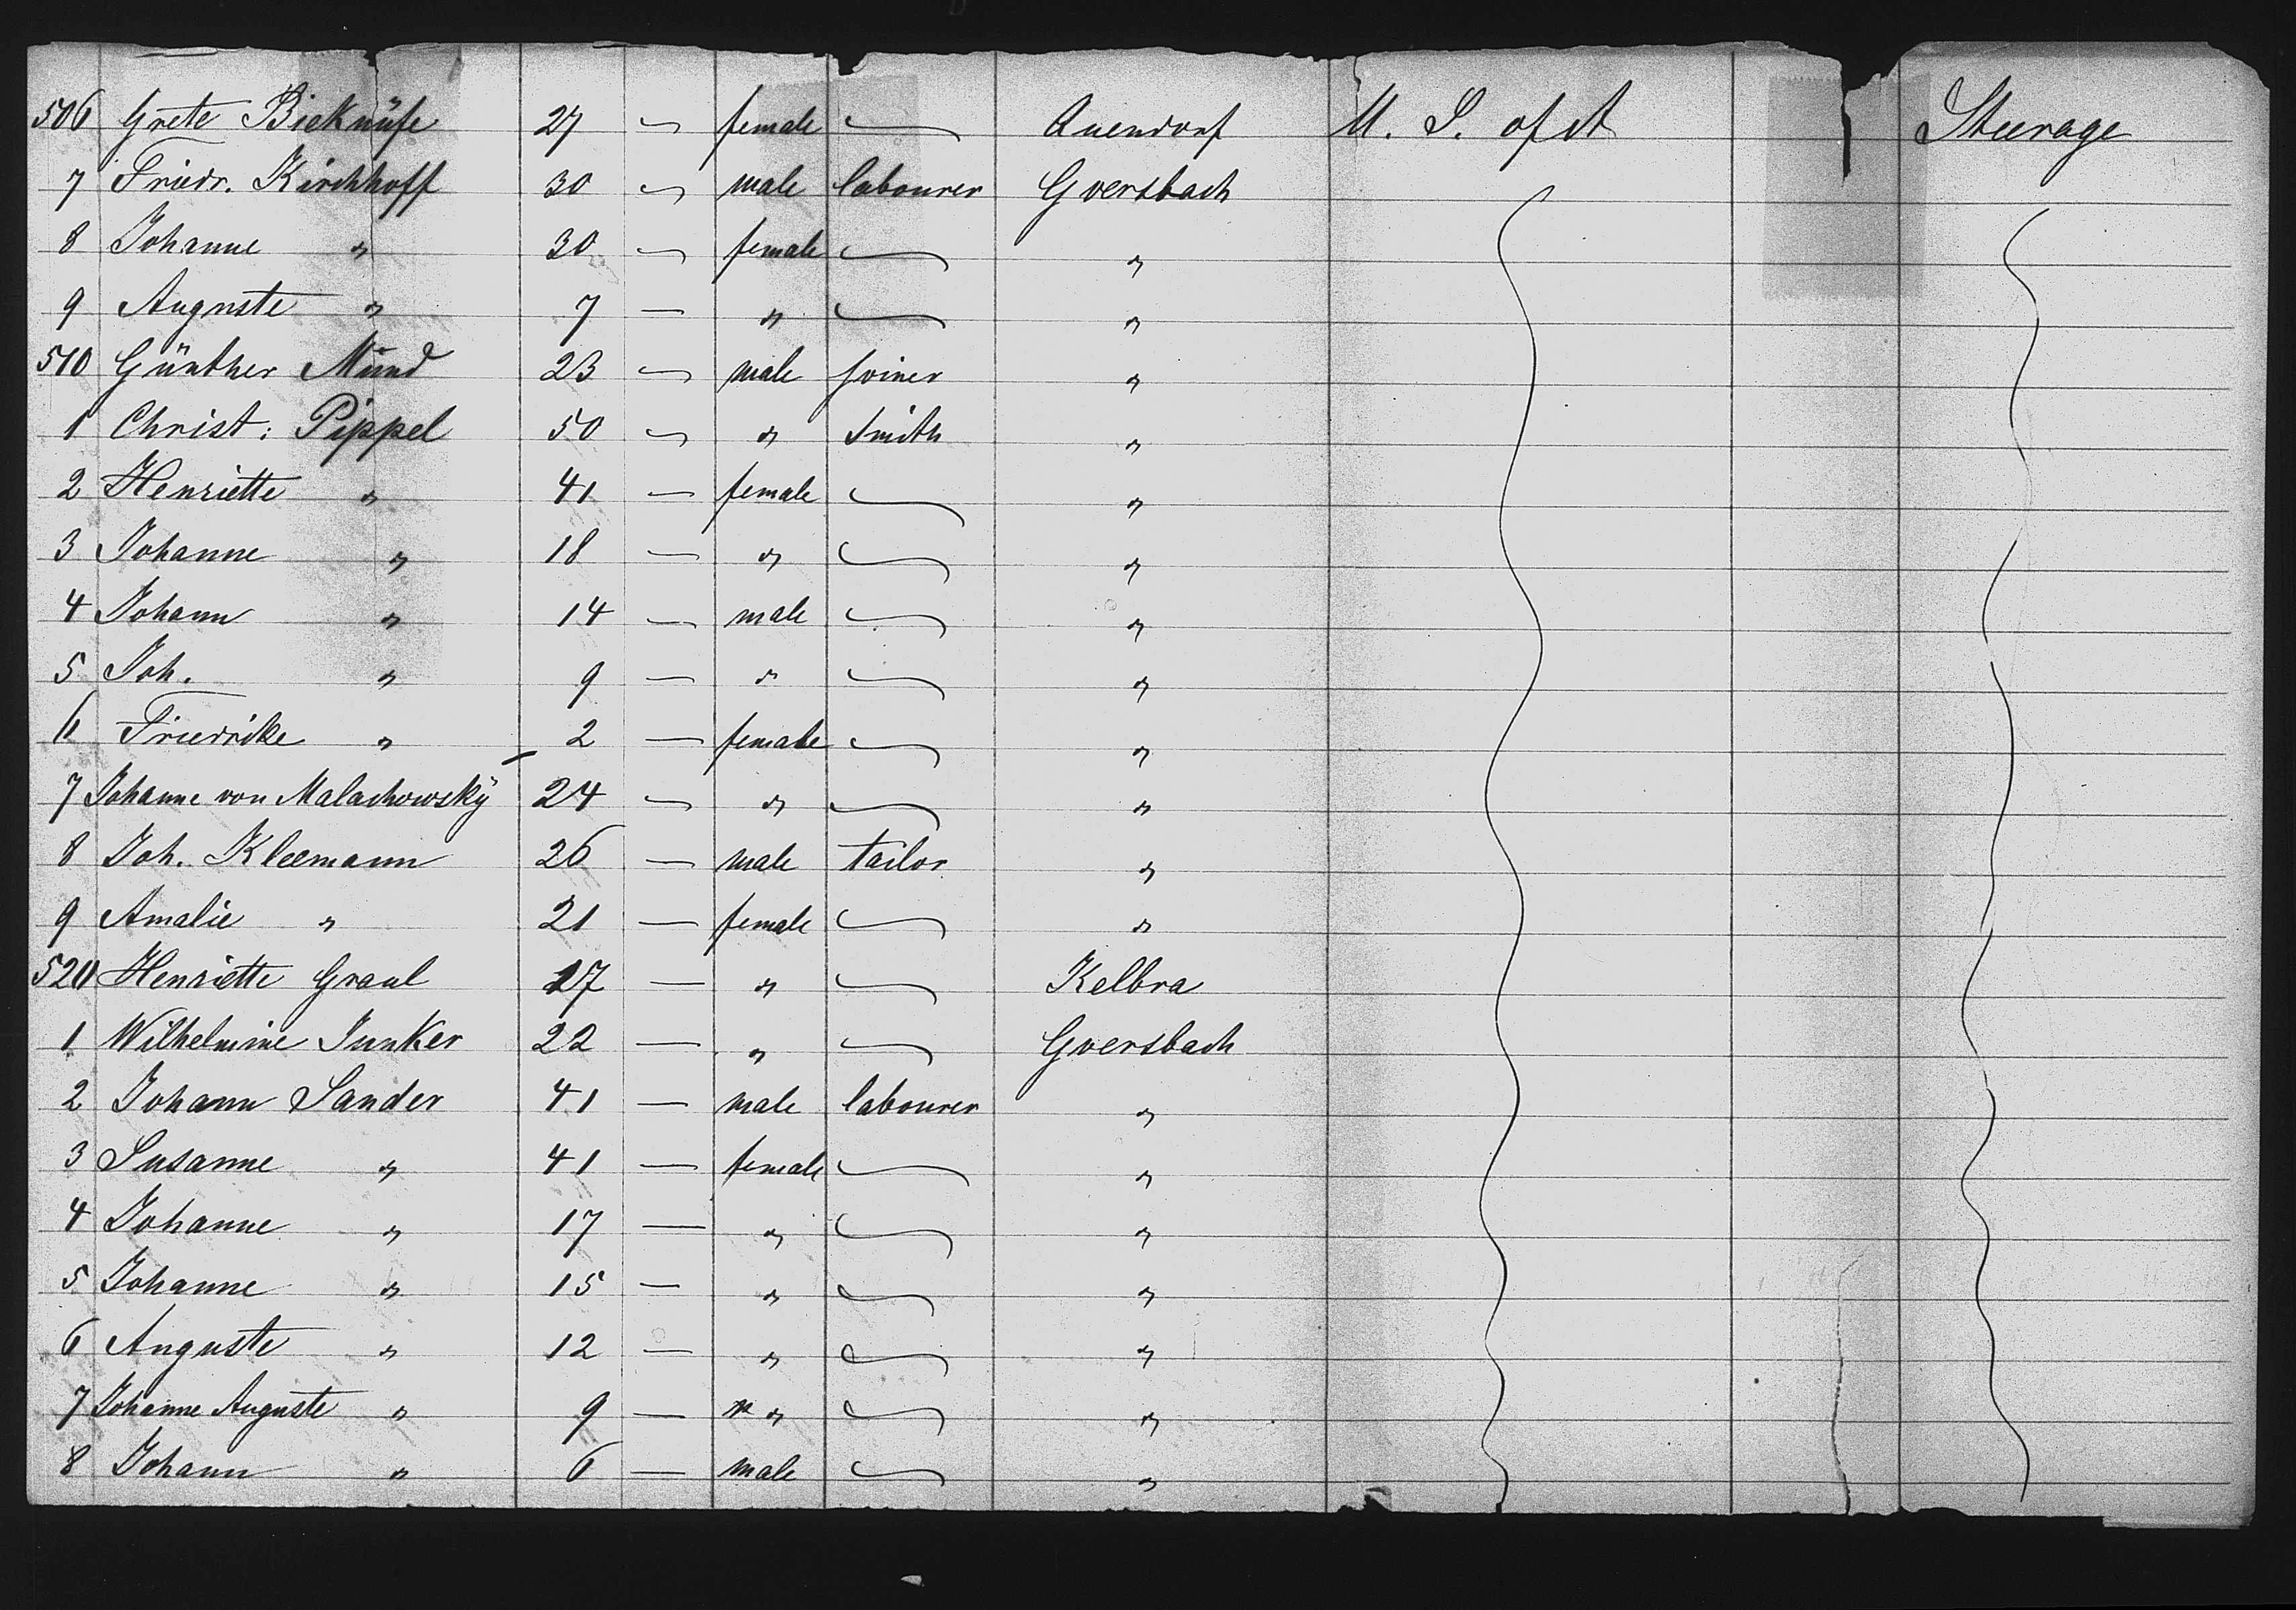 506 Grete Bieknüfe 27 — female — Auendorf U. S. of A Steerage
7 Friedr. Kirchhoff 30 — male labourer Goersbach
8 Johanne " 30 — female — "
9 Auguste " 7 — " — "
510 Günther Mund 23 — male joiner "
1 Christ: Pippel 50 — " Smith "
2 Henriette " 41 — female — "
3 Johanne " 18 — " — "
4 Johann " 14 — male — "
5 Joh. " 9 — " — "
6 Friedrike " 2 — female — "
7 Johanne von Malachowsky 24 — " — "
8 Joh. Kleemann 26 — male tailor "
9 Amalie " 21 — female — "
520 Henriette Graul 27 — " — Kelbra
1 Wilhelmine Junker 22 — " — Goersbach
2 Johann Sander 41 — male labourer "
3 Susanne " 41 — female — "
4 Johanne " 17 — " — "
5 Johanne " 15 — " — "
6 Auguste " 12 — " — "
7 Johanne Auguste " 9 — " — "
8 Johann " 6 — male — "